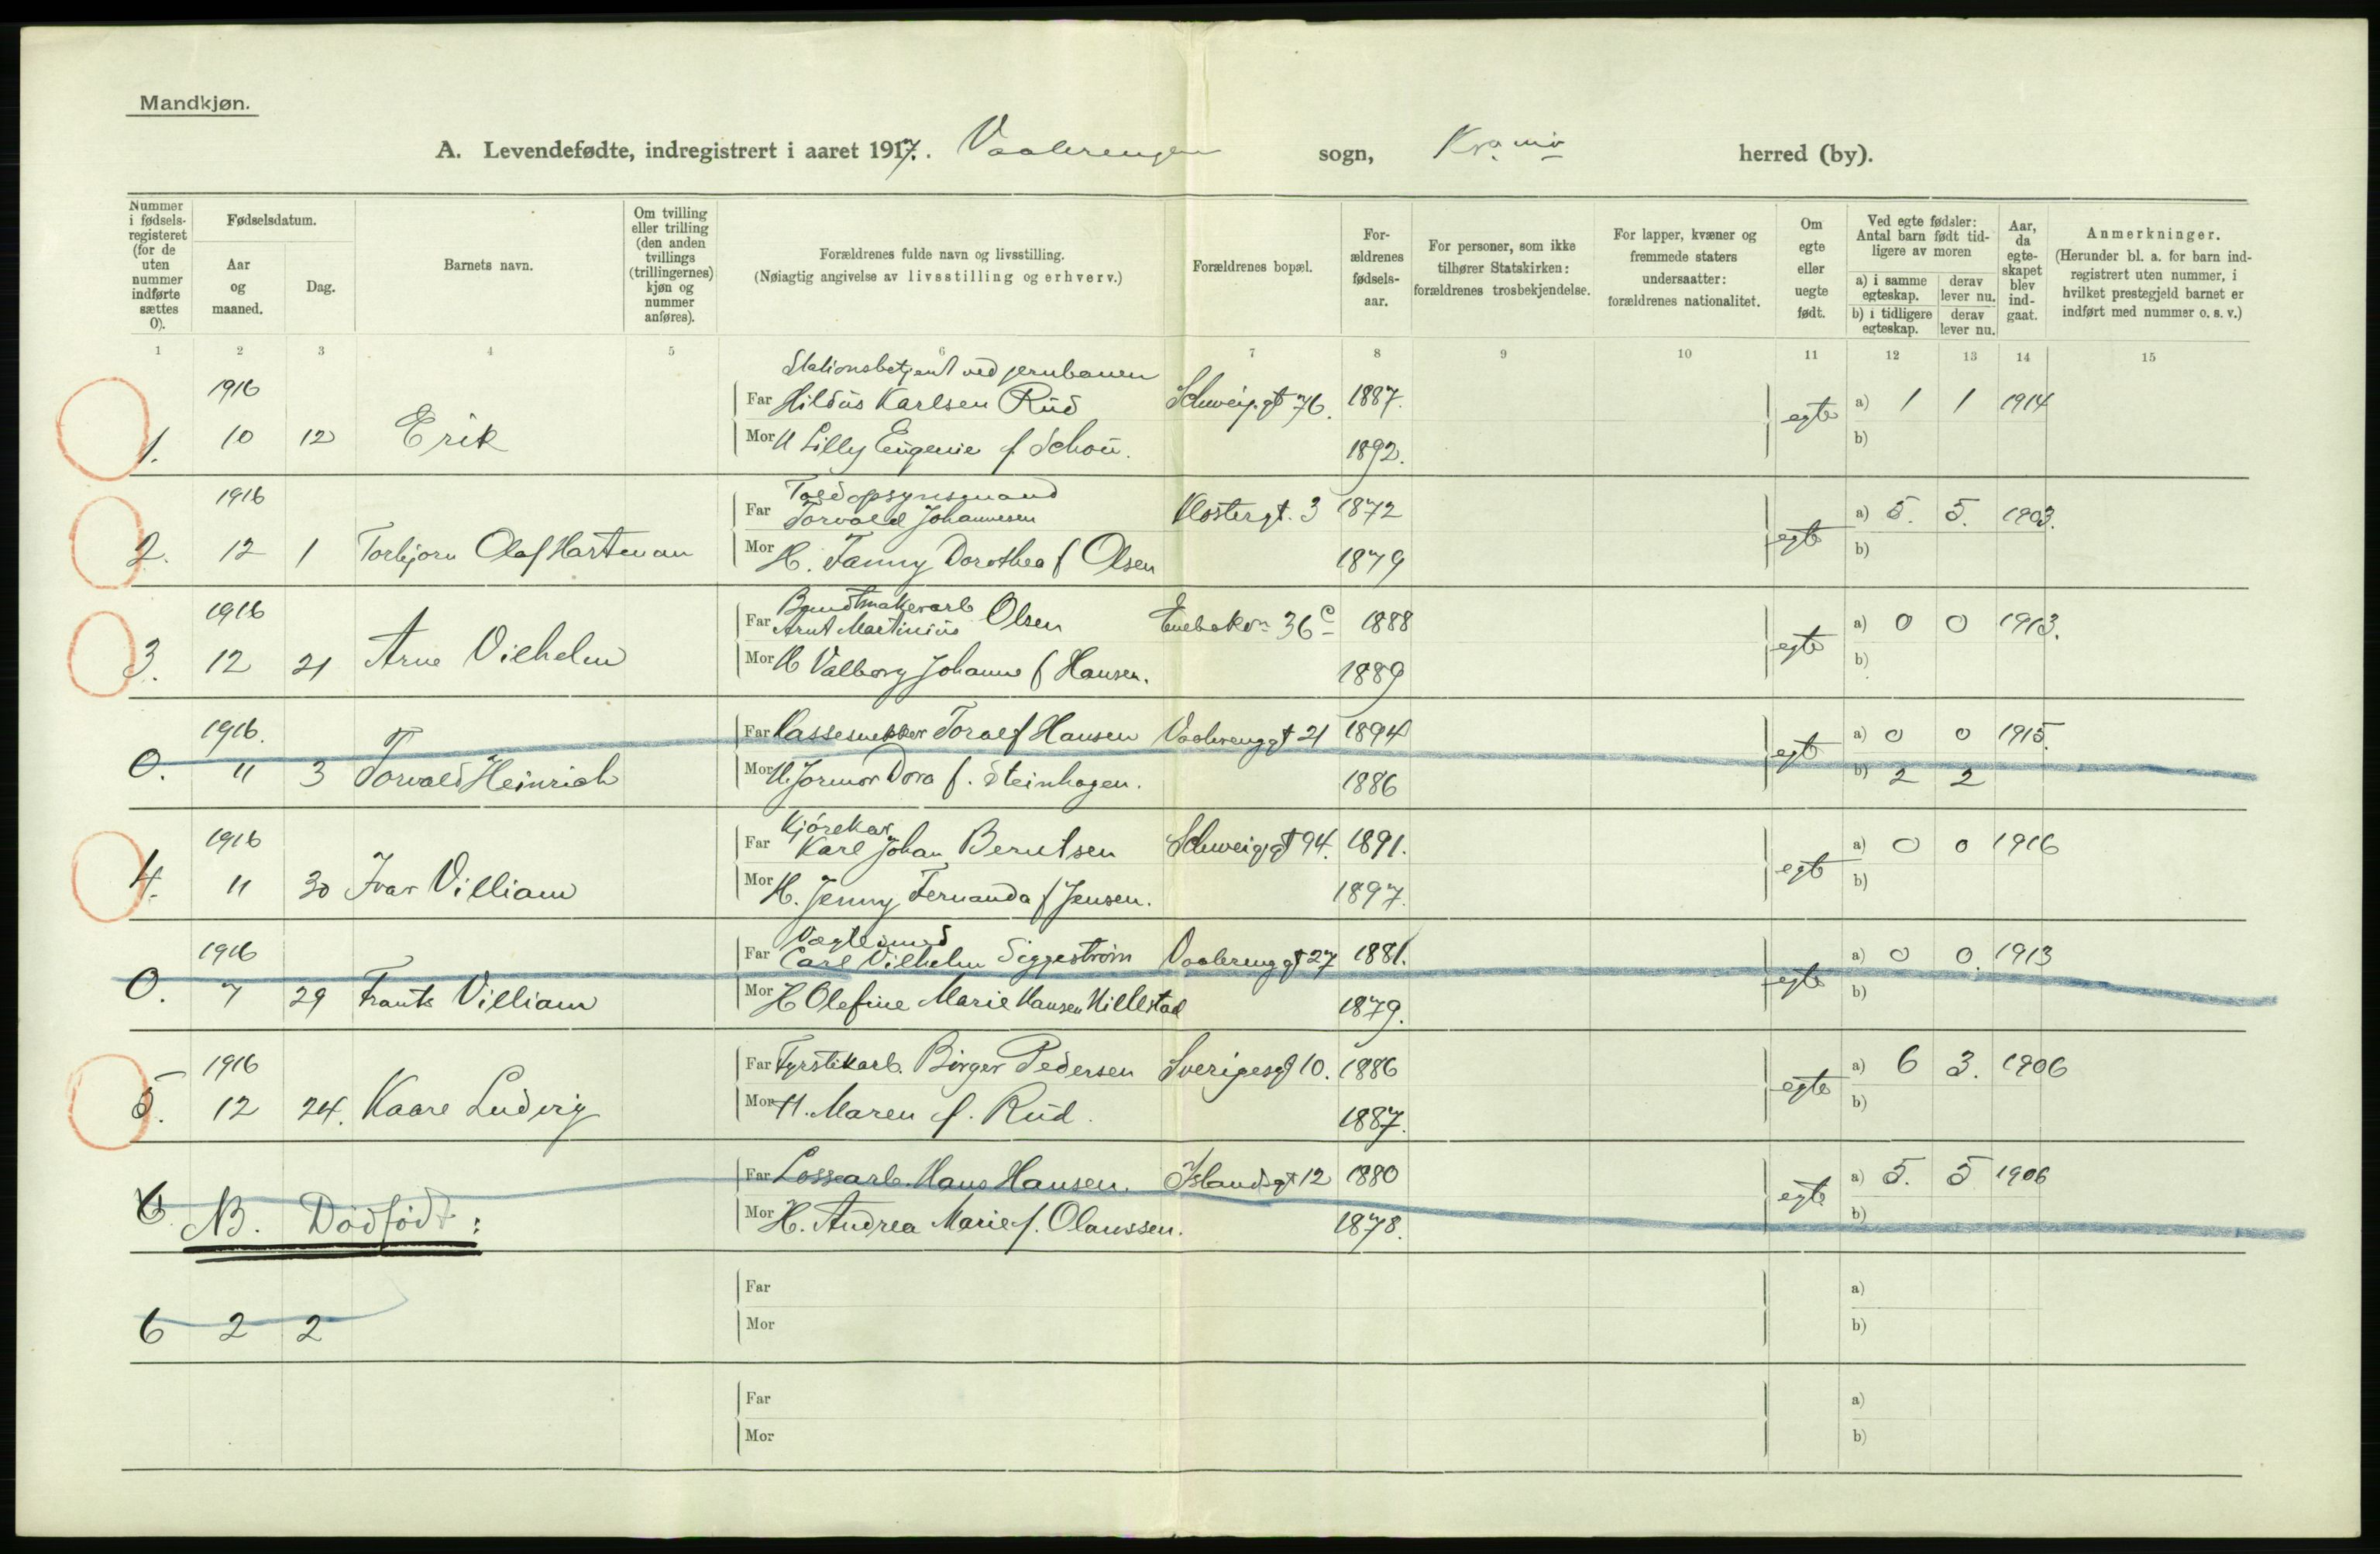 Mandkjøn.
A. Levendefødte, indregistrert i aaret 1917. Vaalerengen sogn, Kr.a herred (by).
Nummer i fødselsregisteret (for de uten nummer indførte sættes 0).
Fødselsdatum.
Aar og maaned.
Dag.
Barnets navn.
Om tvilling eller trilling (den anden tvillings (trillingernes) kjøn og nummer anføres).
Forældrenes fulde navn og livsstilling.
(Nøiagtig angivelse av livsstilling og erhverv.)
Forældrenes bopæl.
Forældrenes fødselsaar.
For personer, som ikke tilhører Statskirken: forældrenes trosbekjendelse.
For lapper, kvæner og fremmede staters undersaatter: forældrenes nationalitet.
Om egte eller uegte født.
Ved egte fødsler: Antal barn født tidligere av moren
a) i samme egteskap. derav lever nu.
b) i tidligere egteskap. derav lever nu.
Aar, da egteskapet blev indgaat.
Anmerkninger.
(Herunder bl. a. for barn indregistrert uten nummer, i hvilket prestegjeld barnet er indført med nummer o. s. v.)
1 2 3 4 5 6 7 8 9 10 11 12 13 14 15
Stationsbetjent ved jernbanen
1916 Far Hildus Karlsen Rud Schweig.gt 76. 1887. egte a) 1 1 1914
1. 10 12 Erik Mor H Lilly Eugenie f Schou. 1892. b)
Toldopsynsmand
1916 Far Torvald Johannesen Klostergt. 3 1872 egte a) 5. 5. 1903.
2. 12 1 Torbjorn Olaf Hartman Mor H. Fanny Dorothea f Olsen 1879 b)
Bundtmakerarb
1916 Far Arnt Martinius Olsen Enebakv. 36 c 1888 egte a) 0 0 1913.
3. 12 21 Arne Vilhelm Mor H Valborg Johanne f Hansen. 1889 b)
1916. Far Kassesnekker Toralf Hansen Vaalerenggt 21 1894 egte a) 0 0 1915.
0. 11 3 Torvald Heinrich Mor H. Jormor Dora f. Steinhagen. 1886 b) 2 2
Kjørekar
1916 Far Karl Johan Berntsen Schweig.gt 94. 1891. egte a) 0 0 1916
4. 11 30 Ivar Villiam Mor H. Jenny Fernanda f Jensen. 1897. b)
Vægtesmed
1916 Far Carl Vilhelm Siggestrøm Vaalerenggt 27 1881. egte a) 0 0. 1913
0. 7 29 Frants Villiam Mor H Olefine Marie Hansen Hillestad 1879. b)
1916 Far Fyrstikarb. Birger Pedersen Sverigesgt 10. 1886 egte a) 6 3. 1906
5. 12 24. Kaare Ludvig Mor H. Maren f. Rud. 1887. b)
Far Lossearb. Hans Hansen. Islandsgt 12 1880 egte a) 5. 5 1906
6. NB. Dødfødt: Mor H. Andrea Marie f. Olaussen. 1878. b)
Far a)
6 2 2 Mor b)
Far a)
Mor b)